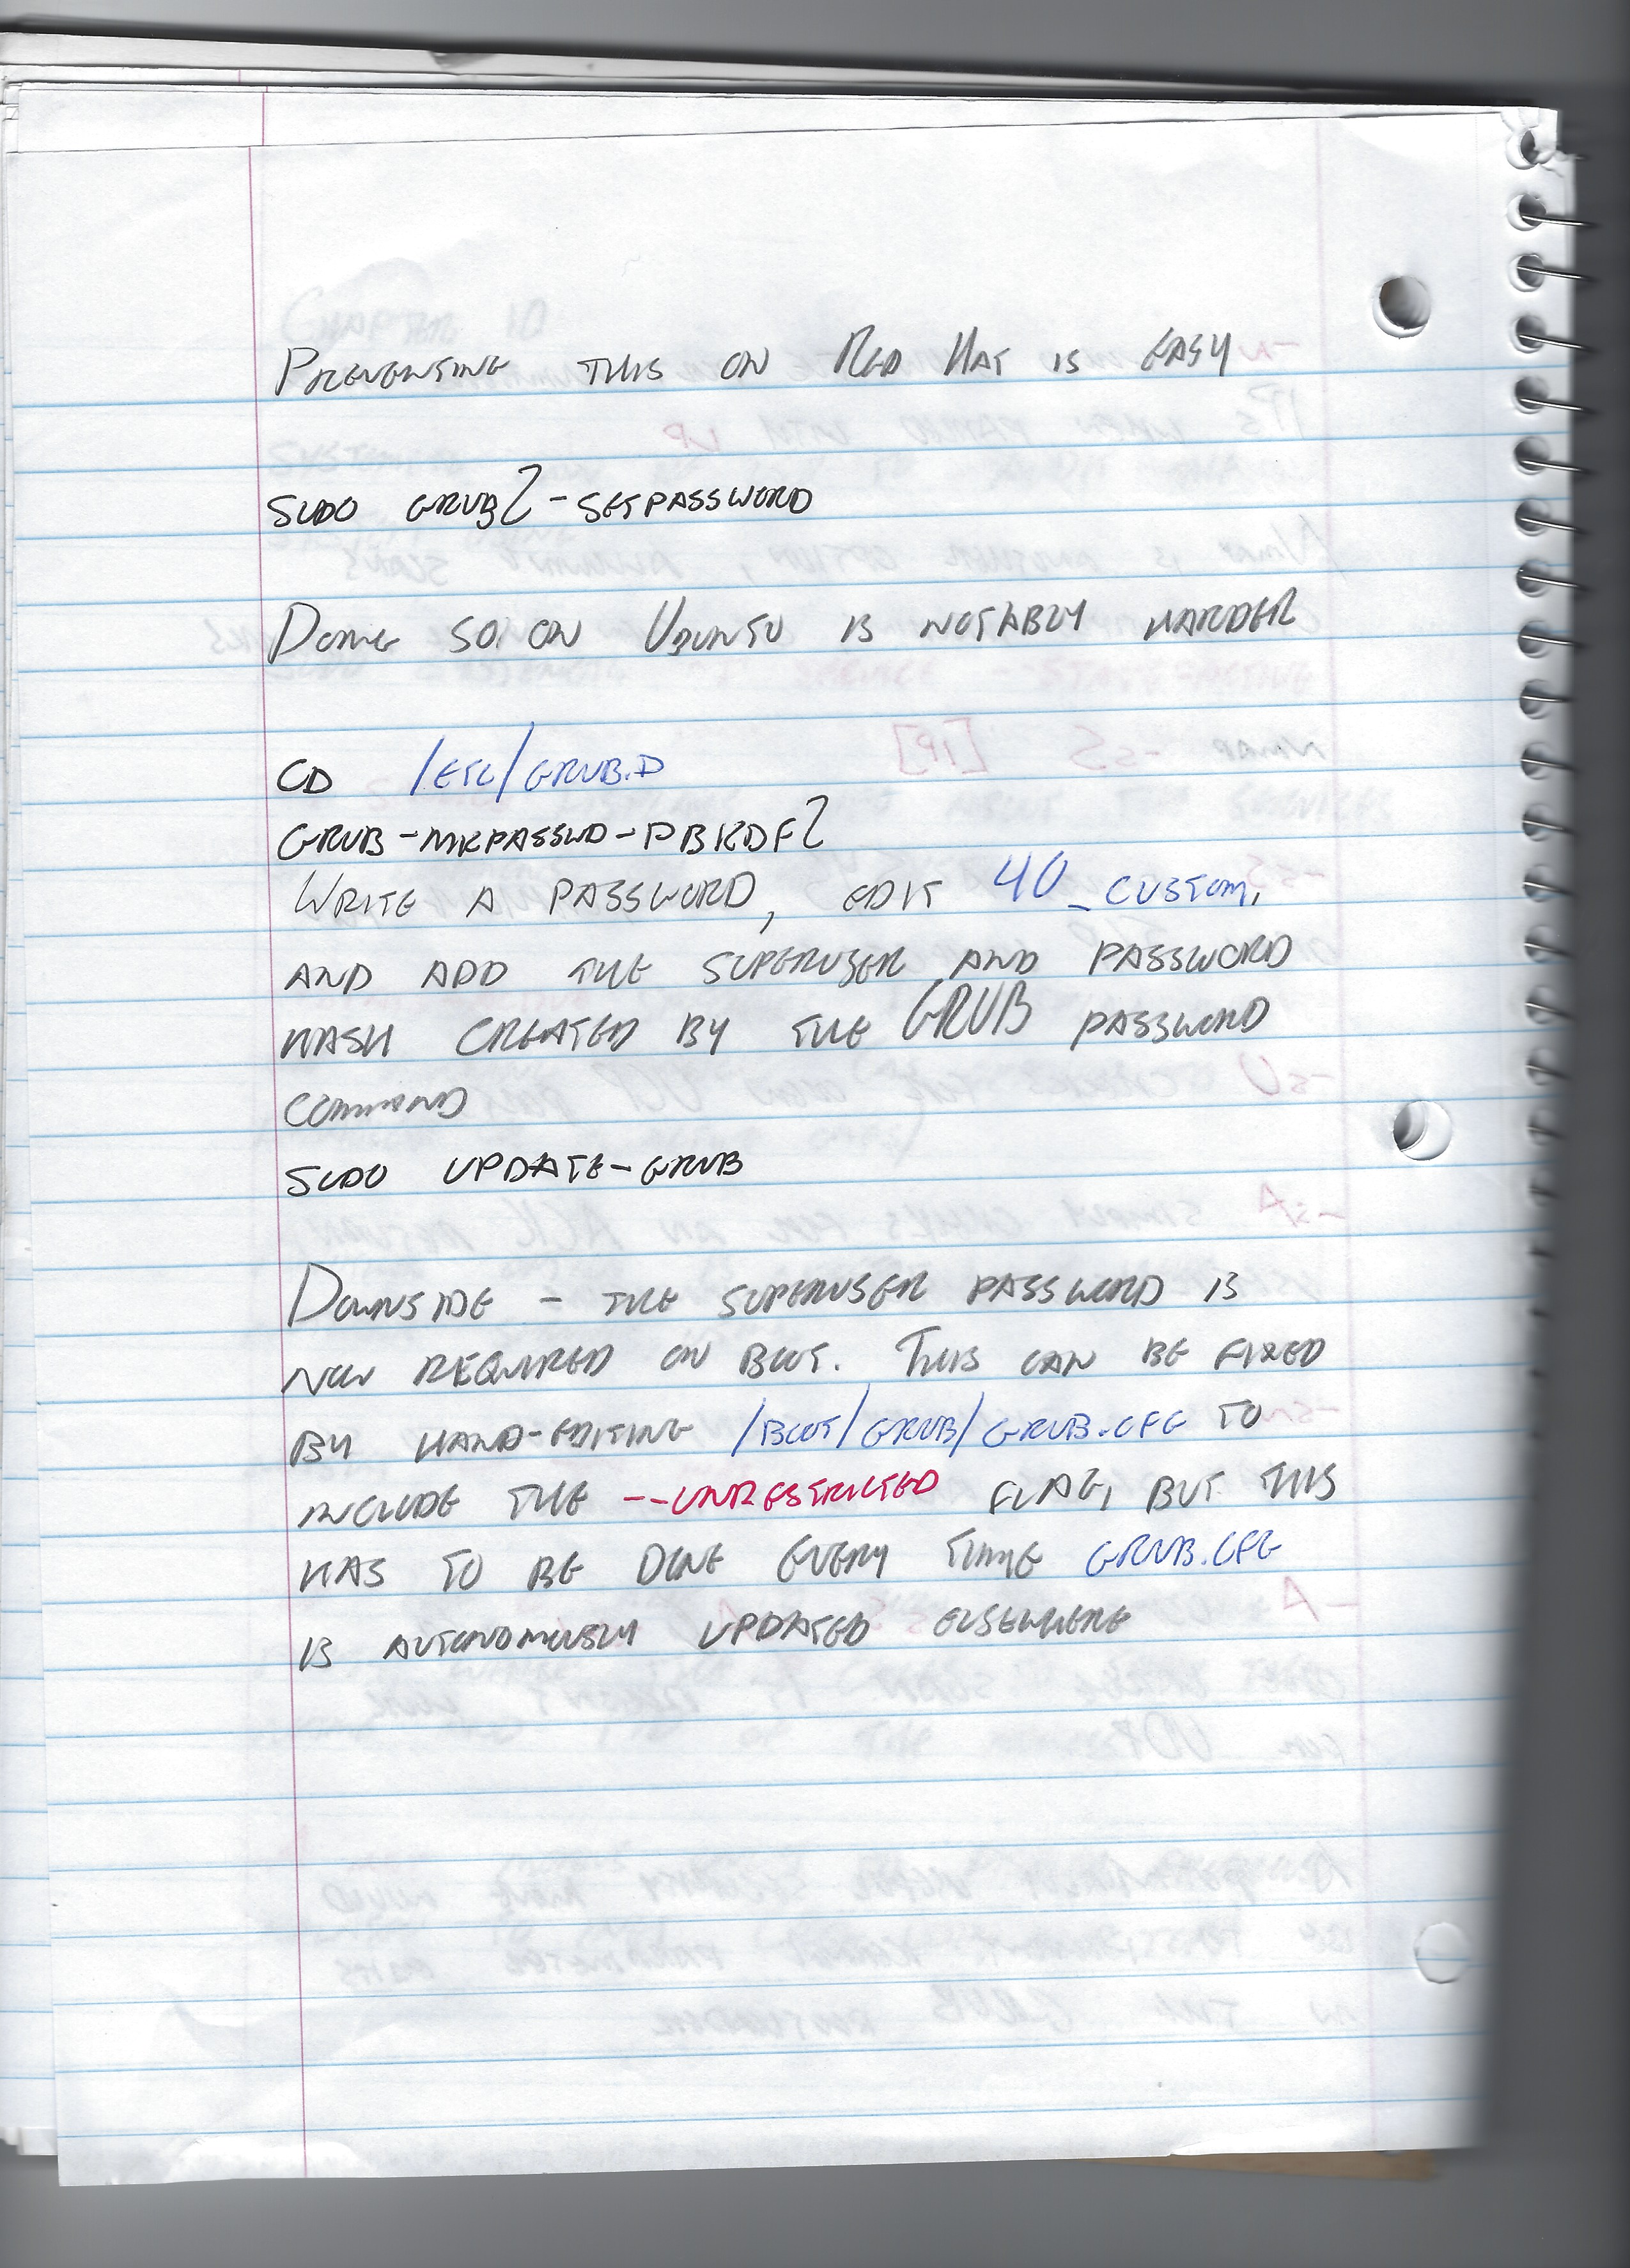 PREVENTING THIS ON RED HAT IS EASY
SUDO GRUB2-SETPASSWORD
DOING SO ON UBUNTU IS NOTABLY HARDER
CD /ETC/GRUB.D
GRUB-MKPASSWD-PBKDF2
WRITE A PASSWORD, EDIT 40_CUSTOM,
AND ADD THE SUPERUSER AND PASSWORD
HASH CREATED BY THE GRUB PASSWORD
COMMAND
SUDO UPDATE-GRUB
DOWNSIDE - THE SUPERUSER PASSWORD IS
NOW REQUIRED ON BOOT. THIS CAN BE FIXED
BY HAND-EDITING /BOOT/GRUB/GRUB.CFG TO
INCLUDE THE --UNRESTRICTED FLAG, BUT THIS
HAS TO BE DONE EVERY TIME GRUB.CFG
IS AUTONOMOUSLY UPDATED ELSEWHERE